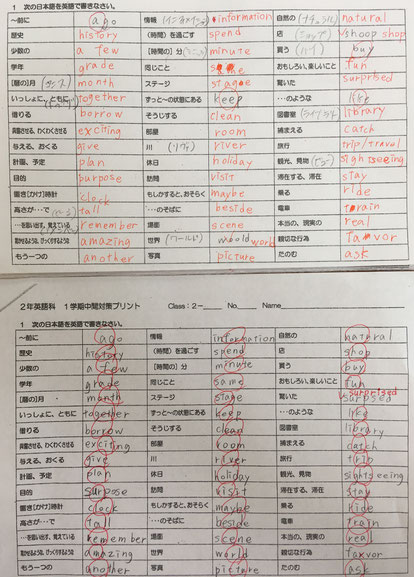 1 次の日本語を英語で書きなさい。
～前に ago 情報 information 自然の natural
歴史 history (時間)を過ごす spend 店 shop
少数の a few (時間の)分 minute 買う buy
学年 grade 同じこと おもしろい、楽しいこと fun
[暦の]月 month ステージ stage 驚いた surprised
いっしょに、ともに together ずっと～の状態にある keep …のような like
借りる borrow そうじする clean 図書室 library
興奮させる、わくわくさせる exciting 部屋 room 捕まえる catch
与える、おくる give 川 river 旅行 trip/travel
計画、予定 plan 休日 holiday 観光、見物 sightseeing
目的 purpose 訪問 visit 滞在する、滞在 stay
置き[かけ]時計 clock もしかすると、おそらく maybe 乗る ride
高さが…で tall …のそばに beside 電車 train
…を思い出す、覚えている remember 場面 scene 本当の、現実の real
驚かせるような、びっくりするような amazing 世界 world 親切な行為 favor
もう一つの another 写真 picture たのむ ask
2年英語科 1学期中間対策プリント Class:2-____ No.____ Name____
1 次の日本語を英語で書きなさい。
～前に ago 情報 information 自然の natural
歴史 history (時間)を過ごす spend 店 shop
少数の a few (時間の)分 minute 買う buy
学年 grade 同じこと same おもしろい、楽しいこと fun
[暦の]月 month ステージ stage 驚いた surprised
いっしょに、ともに together ずっと～の状態にある keep …のような like
借りる borrow そうじする clean 図書室 library
興奮させる、わくわくさせる exciting 部屋 room 捕まえる catch
与える、おくる give 川 river 旅行 trip
計画、予定 plan 休日 holiday 観光、見物 sightseeing
目的 surpose 訪問 visit 滞在する、滞在 stay
置き[かけ]時計 clock もしかすると、おそらく maybe 乗る ride
高さが…で tall …のそばに beside 電車 train
…を思い出す、覚えている remember 場面 scene 本当の、現実の real
驚かせるような、びっくりするような amazing 世界 world 親切な行為 favor
もう一つの another 写真 picture たのむ ask